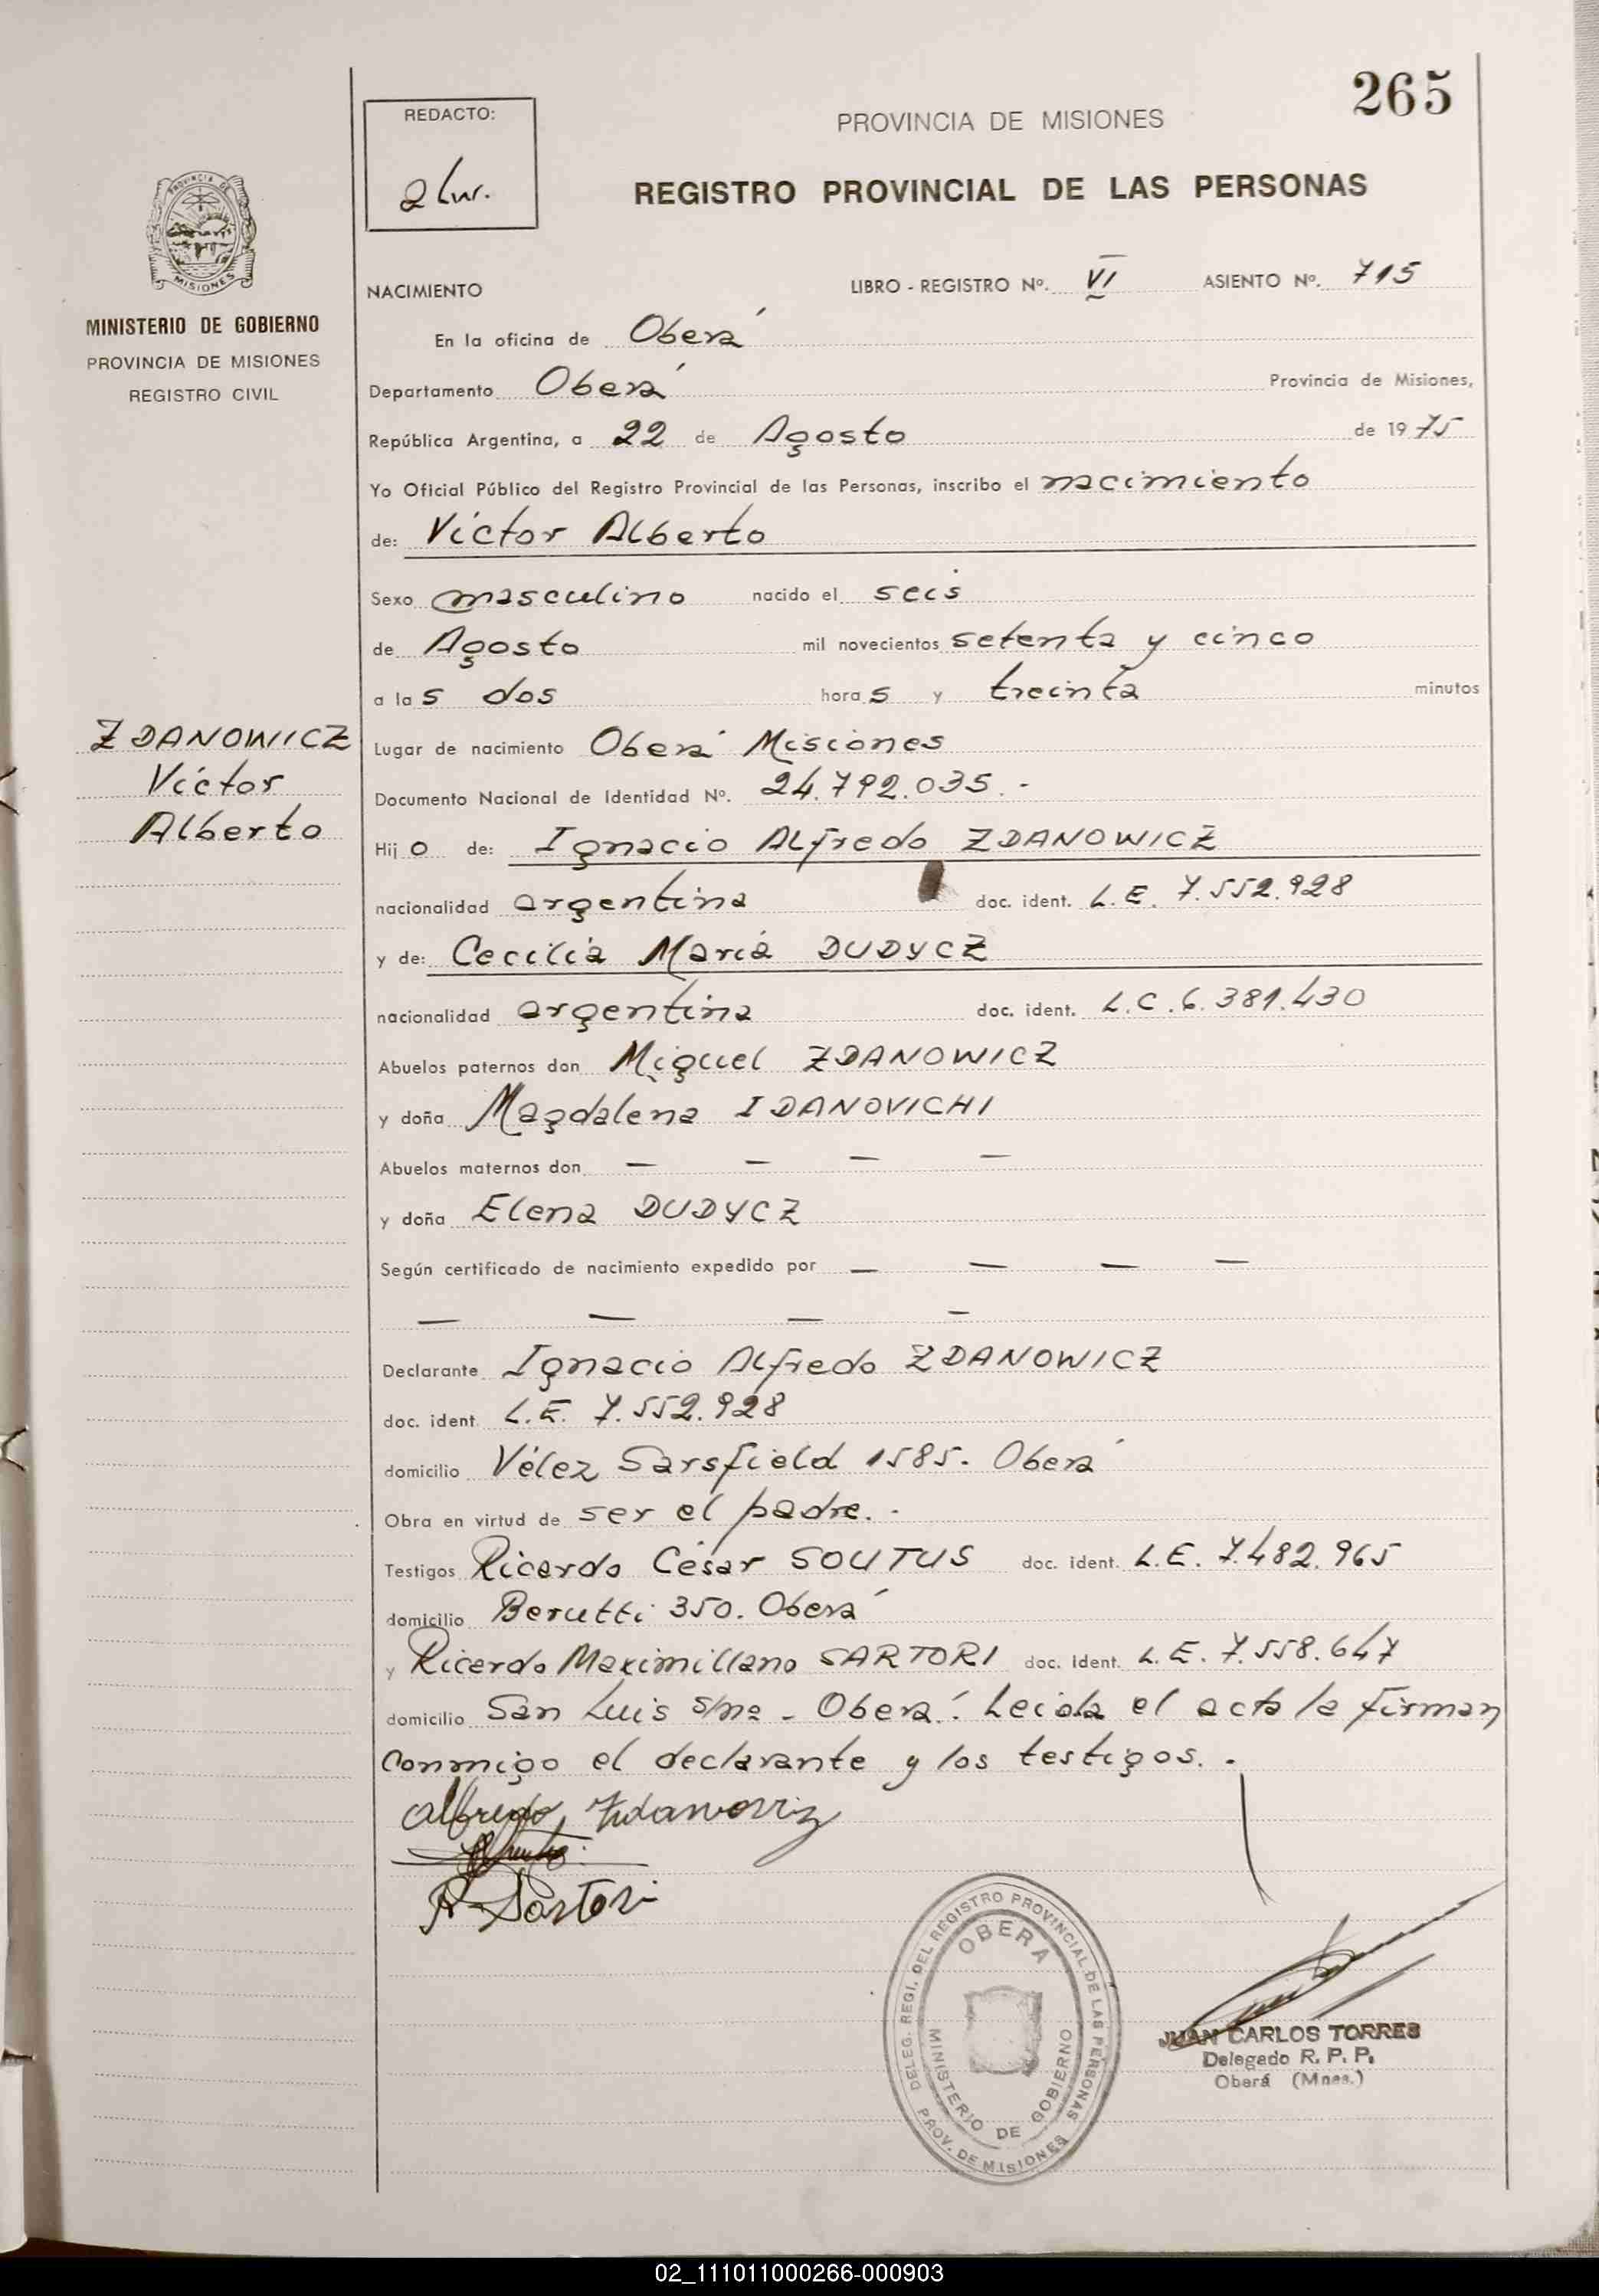 265
REDACTO:
PROVINCIA DE MISIONES
REGISTRO PROVINCIAL DE LAS PERSONAS
PROVINCIA DE
MISIONES
MINISTERIO DE GOBIERNO
PROVINCIA DE MISIONES
REGISTRO CIVIL
NACIMIENTO LIBRO - REGISTRO Nº. VI ASIENTO Nº. 715
En la oficina de Oberá
Departamento Oberá Provincia de Misiones,
República Argentina, a 22 de Agosto de 1975
Yo Oficial Público del Registro Provincial de las Personas, inscribo el nacimiento
de: Víctor Alberto
Sexo masculino nacido el seis
de Agosto mil novecientos setenta y cinco
a las dos horas y treinta minutos
ZDANOWICZ
Víctor
Alberto
Lugar de nacimiento Oberá Misiones
Documento Nacional de Identidad Nº. 24.792.035.-
Hijo de: Ignacio Alfredo ZDANOWICZ
nacionalidad argentina doc. ident. L.E. 7.552.928
y de: Cecilia María DUDYCZ
nacionalidad argentina doc. ident. L.C. 6.381.430
Abuelos paternos don Miguel ZDANOWICZ
y doña Magdalena IDANOVICHI
Abuelos maternos don — — — —
y doña Elena DUDYCZ
Según certificado de nacimiento expedido por — — — —
— — — —
Declarante Ignacio Alfredo ZDANOWICZ
doc. ident. L.E. 7.552.928
domicilio Vélez Sarsfield 1585. Oberá
Obra en virtud de ser el padre.-
Testigos Ricardo César SOUTUS doc. ident. L.E. 7.482.965
domicilio Berutti 350. Oberá
y Ricardo Maximiliano SARTORI doc. ident. L.E. 7.558.647
domicilio San Luis s/nº - Oberá. Leida el acta la firman
conmigo el declarante y los testigos.-
Alfredo Zdanowicz
R. Sartori
DELEG. REGI. DEL REGISTRO PROVINCIAL DE LAS PERSONAS
OBERA
MINISTERIO DE GOBIERNO
PROV. DE MISIONES
JUAN CARLOS TORRES
Delegado R. P. P.
Oberá (Mnes.)
02_111011000266-000903